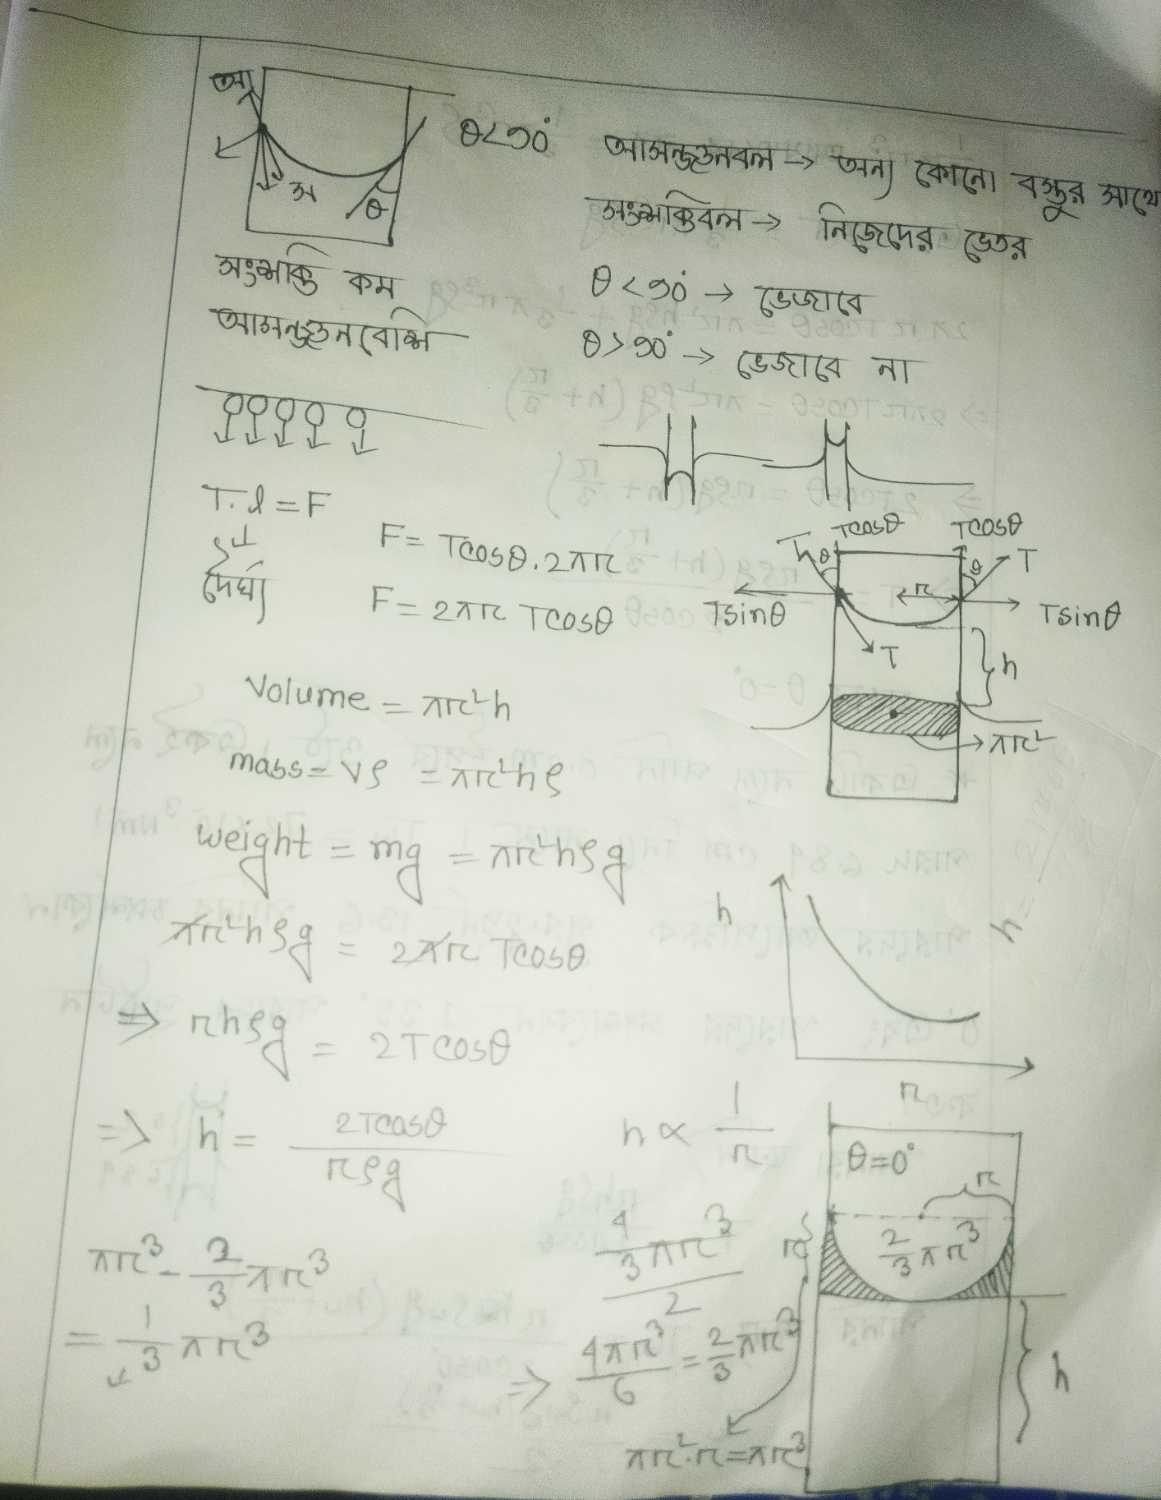 আ
θ<90° আসঞ্জনবল → অন্য কোনো বস্তুর সাথে
অ
θ
সংশক্তিবল → নিজেদের ভেতর
সংশক্তি কম
θ<90° → ভেজাবে
আসঞ্জন বেশি
θ>90° → ভেজাবে না
T.l = F
দৈর্ঘ্য
F = Tcosθ.2πr
F = 2πr Tcosθ
Tcosθ Tcosθ
T θ θ T
Tsinθ r Tsinθ
T
h
πr²
Volume = πr²h
mass = vρ = πr²hρ
weight = mg = πr²hρg
πr²hρg = 2πr Tcosθ
⇒ rhρg = 2Tcosθ
⇒ h = 2Tcosθ / rρg
h
r
h ∝ 1/r
θ=0°
r
r
2/3 πr³
h
πr³ - 2/3 πr³
= 1/3 πr³
4/3 πr³ / 2
⇒ 4πr³/6 = 2/3 πr³
πr².r = πr³